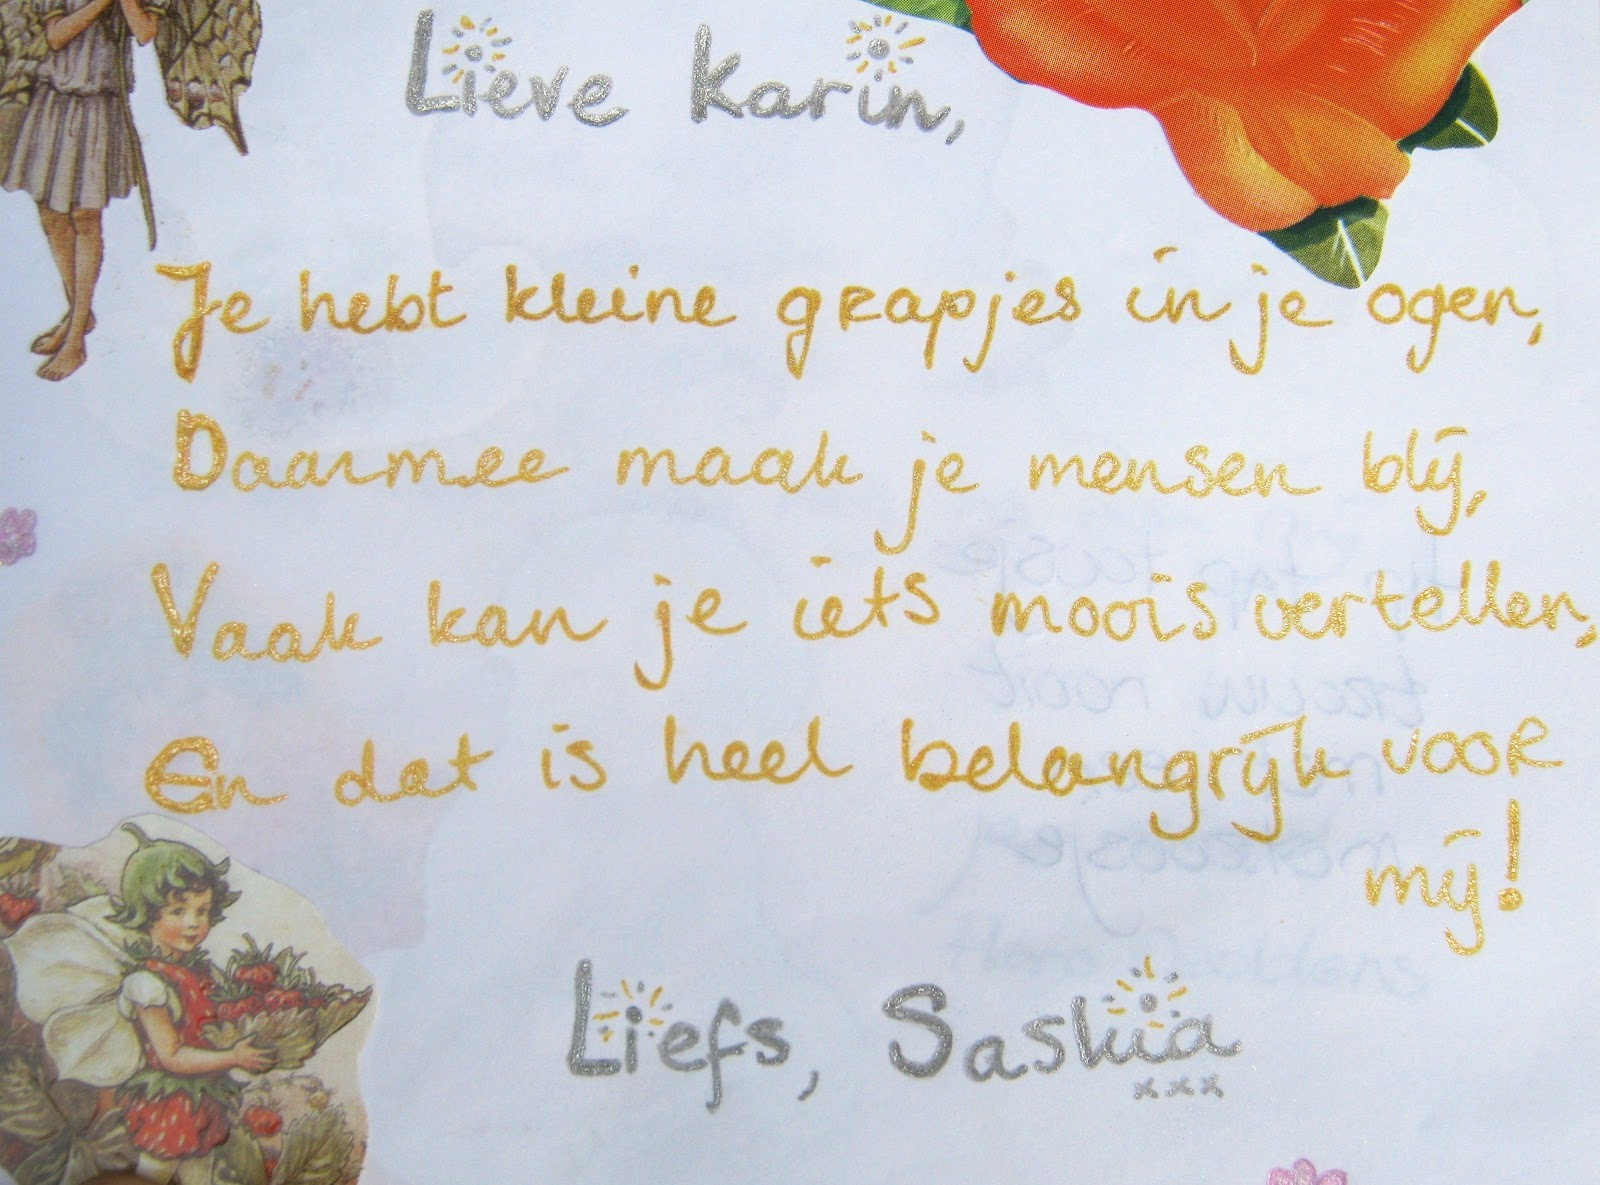 Lieve Karin,
Je hebt kleine grapjes in je ogen,
Daarmee maak je mensen blij,
Vaak kan je iets moois vertellen,
En dat is heel belangrijk voor
mij!
Liefs, Saskia
xxx